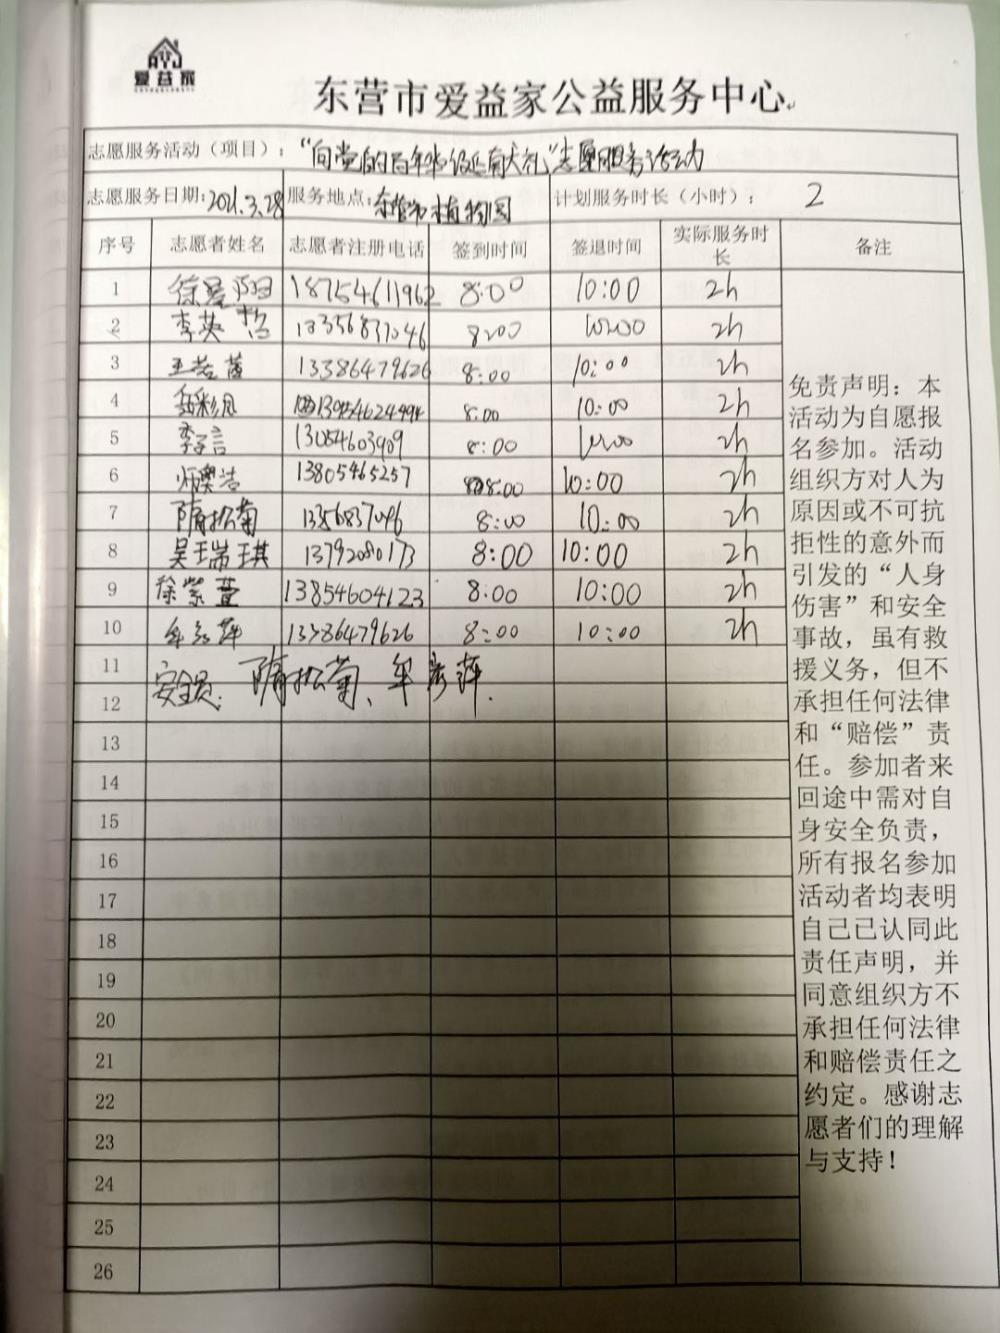 爱益家
东营市爱益家公益服务中心
志愿服务活动（项目）：“向党的百年华诞献大礼”志愿服务活动
志愿服务日期：2021.3.28 服务地点：东营市植物园 计划服务时长（小时）： 2
序号 志愿者姓名 志愿者注册电话 签到时间 签退时间 实际服务时长 备注
1 徐 阳 18754611962 8:00 10:00 2h
2 李英哲 8:00 10:00 2h
3 王若菡 13386479626 8:00 10:00 2h
4 8:00 10:00 2h
5 李子言 13054603909 8:00 10:00 2h
6 13805465257 8:00 10:00 2h
7 隋松菊 8:00 10:00 2h
8 吴瑞琪 13792080173 8:00 10:00 2h
9 徐紫萱 13854604123 8:00 10:00 2h
10 牟彦萍 13386479626 8:00 10:00 2h
11
安全员：隋松菊、牟彦萍.
12
13
14
15
16
17
18
19
20
21
22
23
24
25
26
免责声明：本
活动为自愿报
名参加。活动
组织方对人为
原因或不可抗
拒性的意外而
引发的“人身
伤害”和安全
事故，虽有救
援义务，但不
承担任何法律
和“赔偿”责
任。参加者来
回途中需对自
身安全负责，
所有报名参加
活动者均表明
自己已认同此
责任声明，并
同意组织方不
承担任何法律
和赔偿责任之
约定。感谢志
愿者们的理解
与支持！